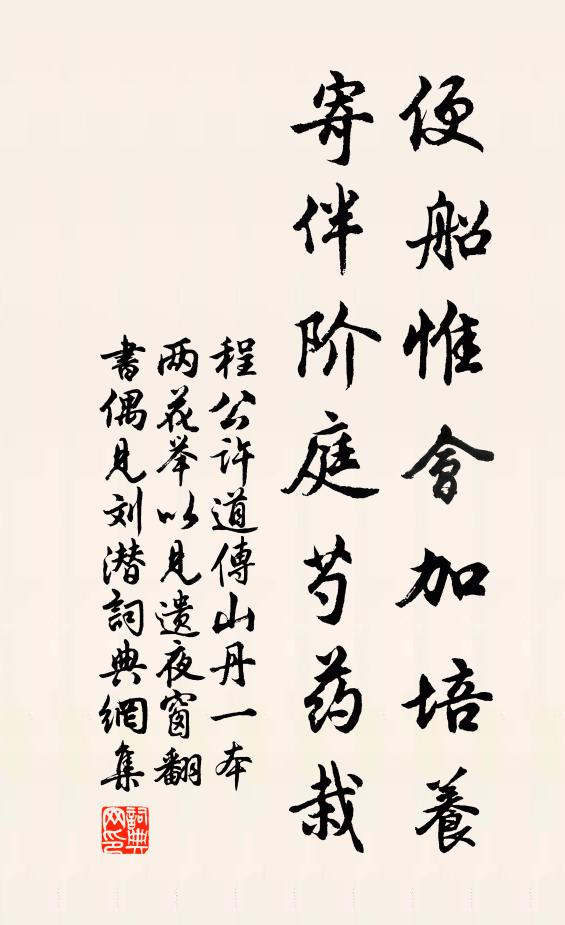 便船惟會加培養
寄伴阶庭芍药栽
程公许道傳山丹一本
两花举以見遗夜窗翻
書偶見刘潜詞典網集
詞典网印